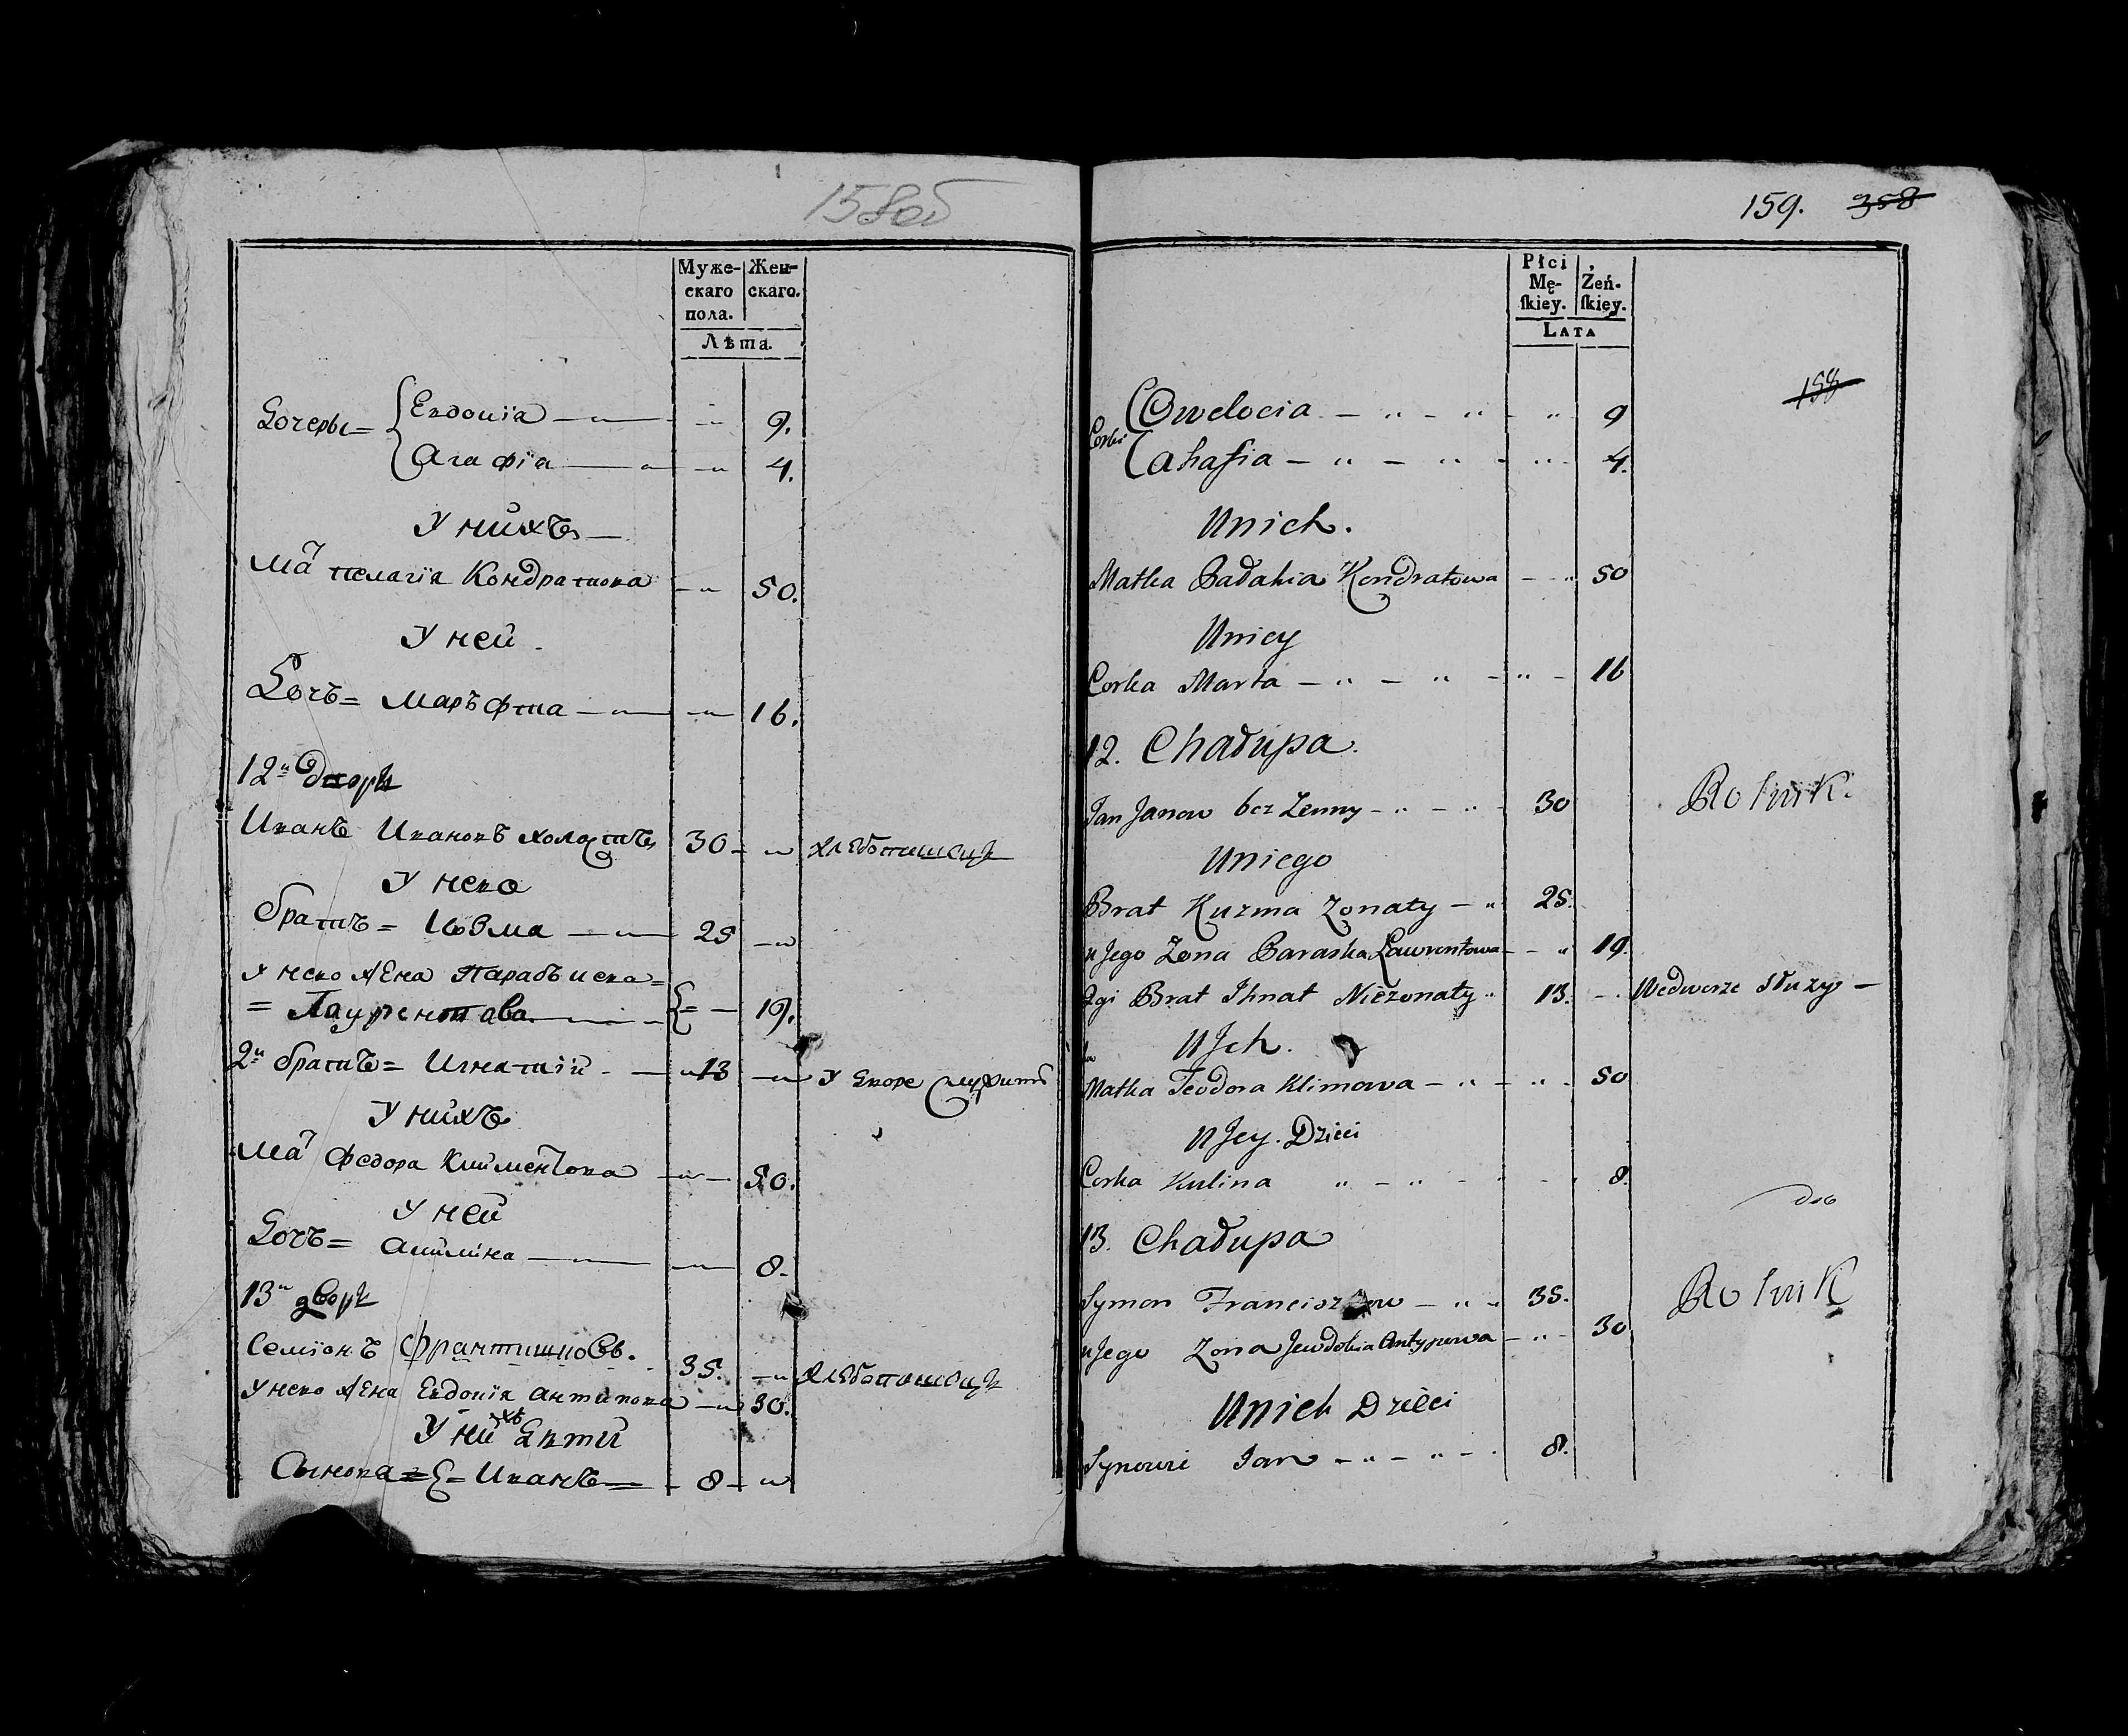 158об
Муже- Жен-
скаго скаго.
пола.
Лѣта.
Дочеры = Евдокія 9.
Агафія 4.
У нихъ
Ма т Пелагія Кондратова 50.
У ней
Дочъ = Маръфта 16.
12й дворъ
Иванъ Ивановъ холостъ 30 хлѣбопашецъ
У нево
братъ = Козма 25
У нево жена Парасъ
= Лаурентава 19.
2й братъ = Игнатій 13 У дворе служитъ
У нихъ
Ма т Федора Климентова 50.
У ней
Дочъ = Акилина 8.
13й дворъ
Семіонъ Францишковъ 35. хлѣбопашецъ
У нево жена Евдокія Антипова 30.
У нихъ дѣти
Сынова = Иванъ 8
159. 358
Płci
Mę- Żeń-
ſkiey. ſkiey.
LATA
158
Corki Owdocia 9
Ahafia 4.
Unich.
Matka Pałahia Kondratowa 50
Uniey
Corka Marta 16
12. Chałupa.
Jan Janow bez Zenny 30 Rolnik
Uniego
Brat Kuzma Zonaty 25.
u Jego Zona Paraska Lawrentowa 19.
2gi Brat Ihnat Niezonaty 13. Wedworze słuzy
u Ich.
Matka Teodora Klimowa 50
u Jey. Dzieci
Corka Kulina 8.
13. Chałupa
Symon Franciszkow 35. Rolnik
u Jego Zona Jewdokia Antypowa 30
Unich Dzieci
Synowie Jan 8.